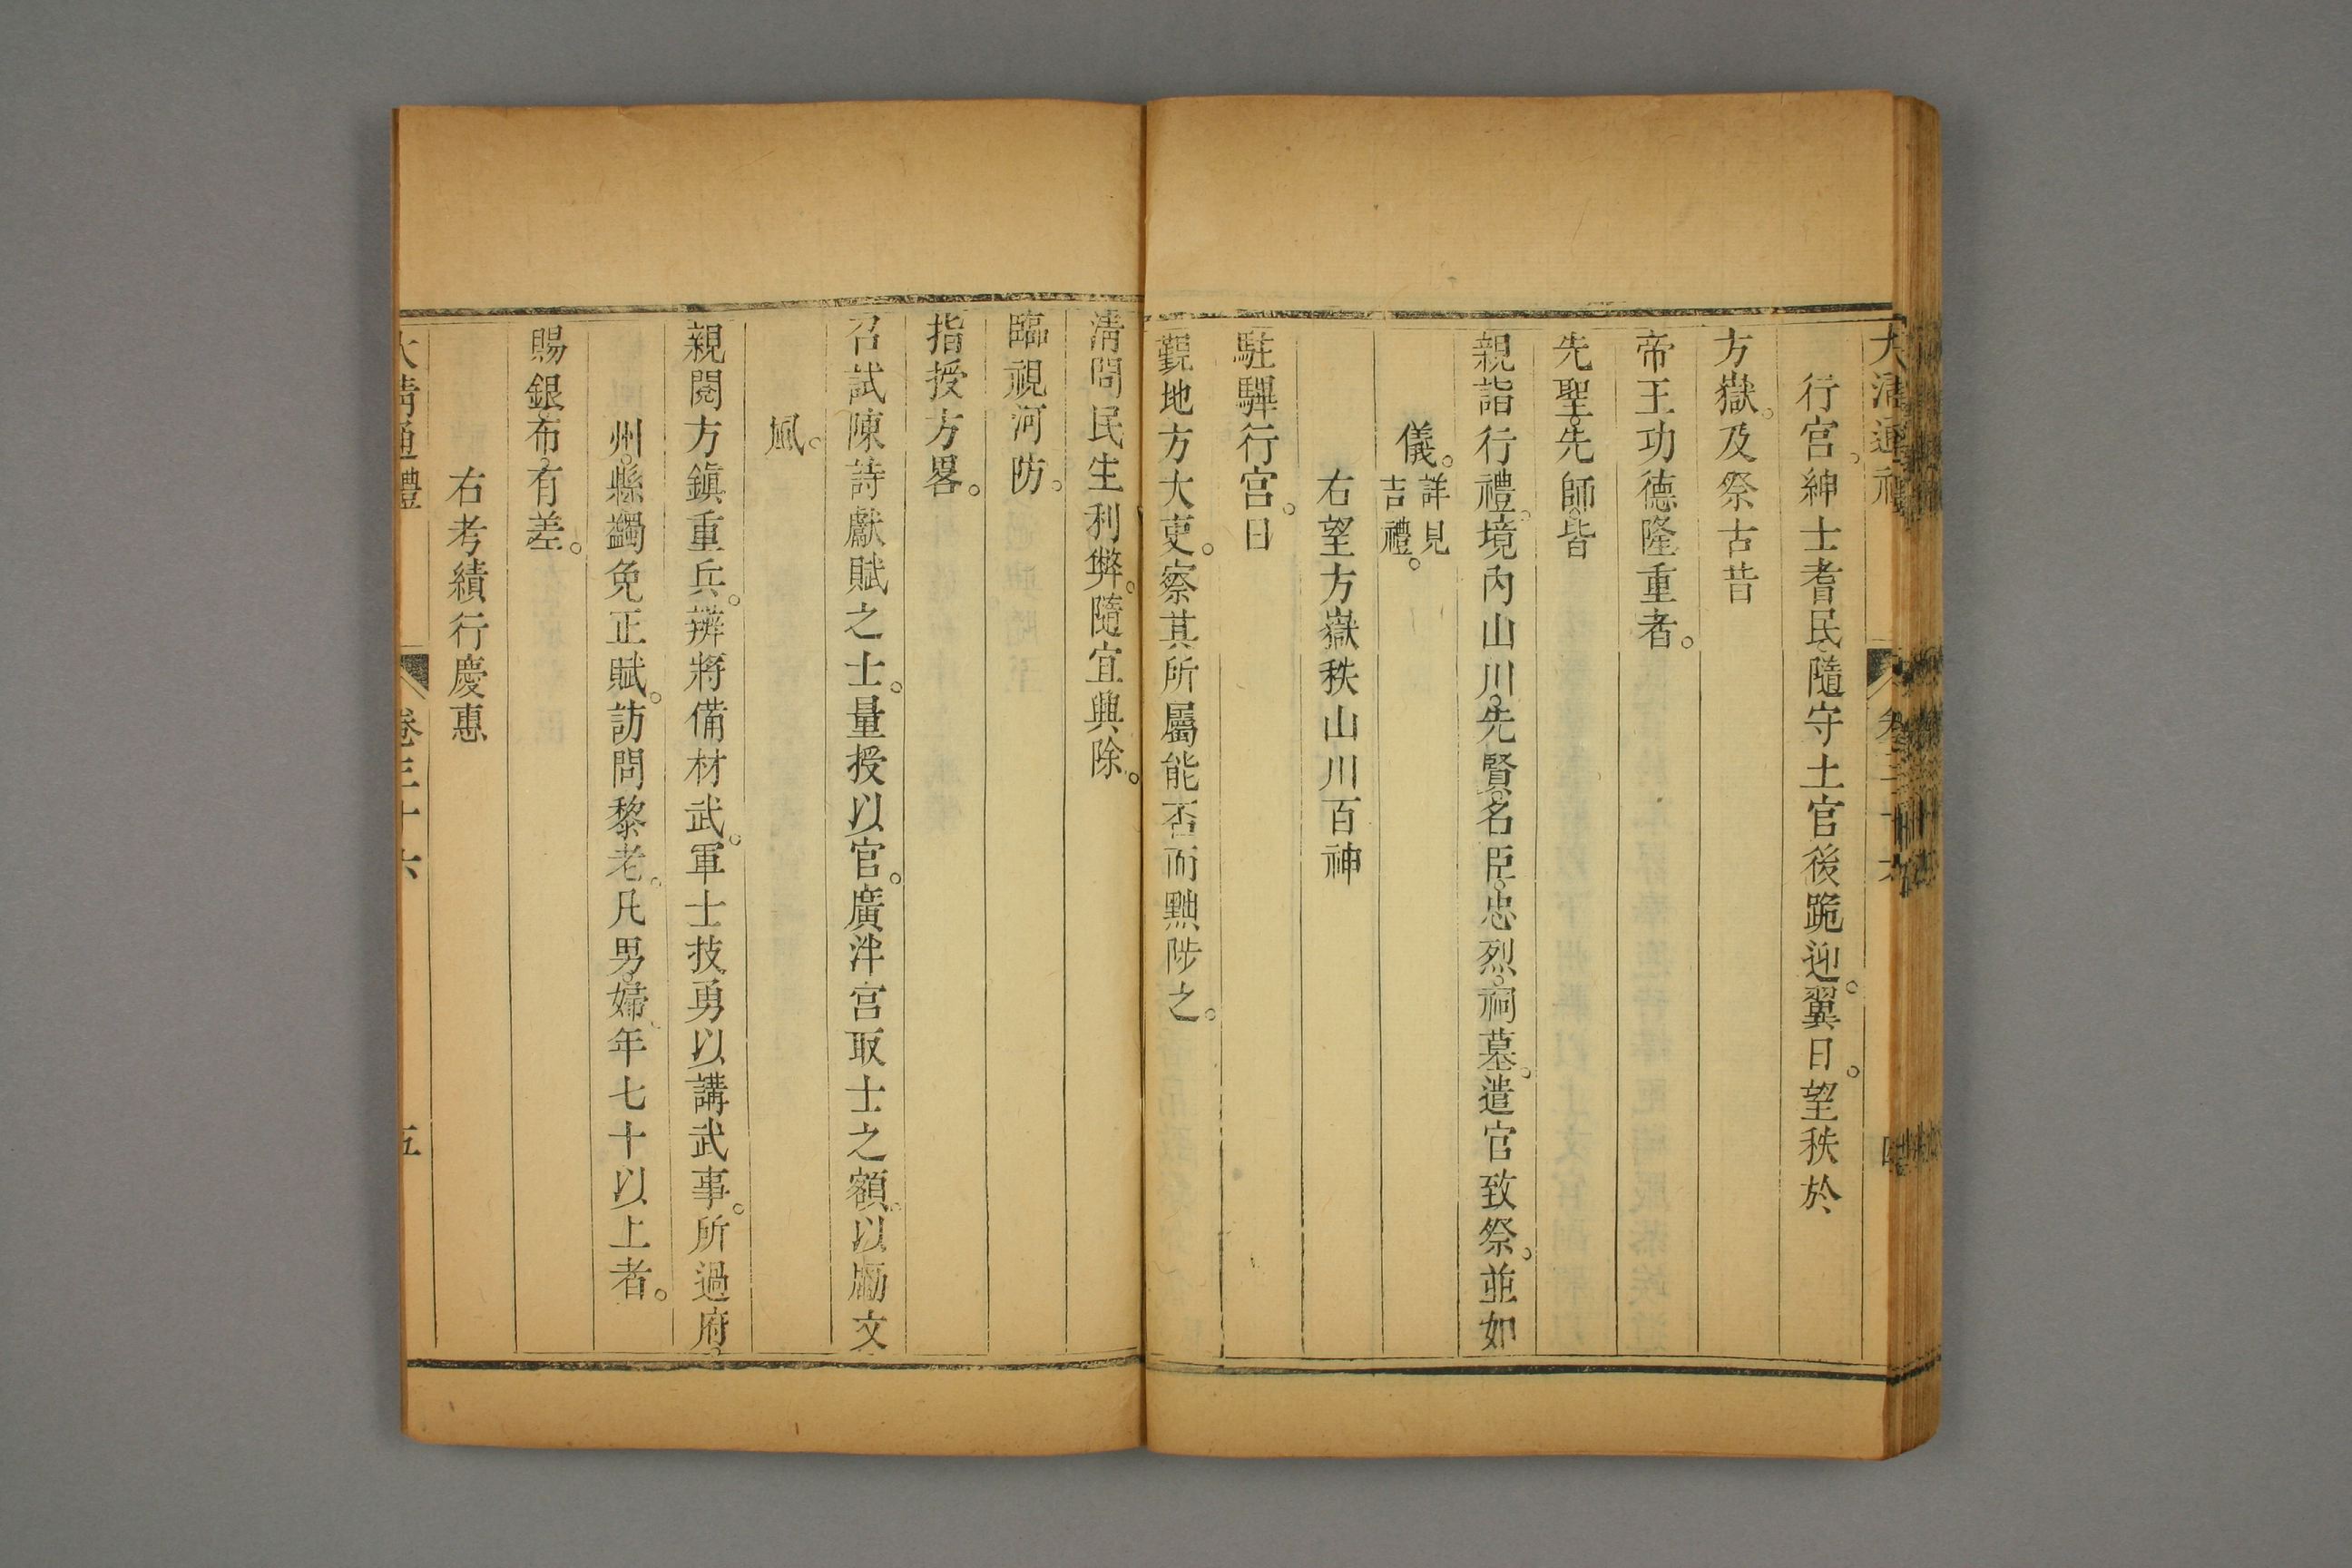 大清通禮 卷三十六 四
行宫。紳士耆民。隨守土官後跪迎。翼日。望秩於
方嶽。及祭古昔
帝王功德隆重者。
先聖。先師。皆
親詣行禮。境內山川。先賢。名臣。忠烈。祠墓。遣官致祭。並如
儀。詳見吉禮。
右望方嶽秩山川百神
駐驆行宫。日
覲地方大吏。察其所屬能否而黜陟之。
清問民生利弊。隨宜興除。
臨視河防。
指授方畧。
召試陳詩獻賦之士。量授以官。廣泮宮取士之額。以勵文
風。
親閱方鎮重兵。辨將備材武。軍士技勇以講武事。所過府。
州。縣蠲免正賦。訪問黎老。凡男。婦。年七十以上者。
賜銀。布。有差。
右考績行慶惠
大清通禮 卷三十六 五